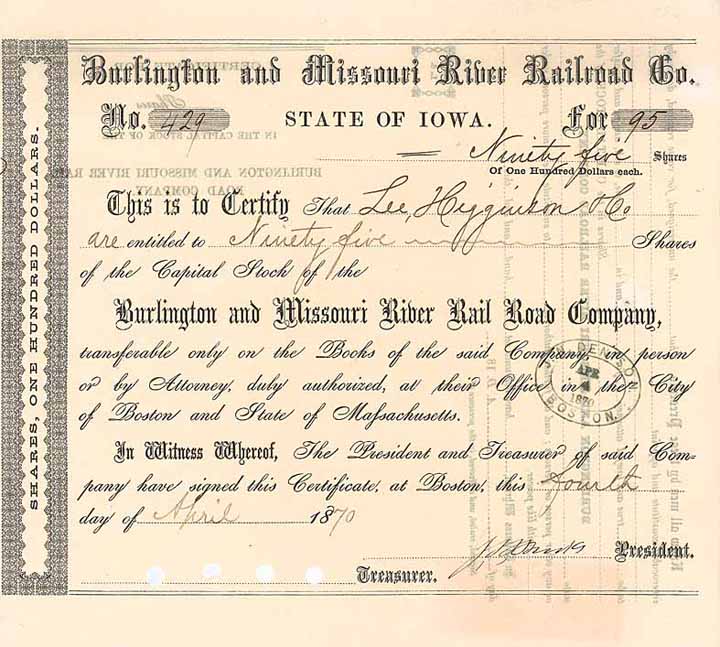 SHARES, ONE HUNDRED DOLLARS.
Burlington and Missouri River Railroad Co.
No. 429 STATE OF IOWA. For 95
Ninety five Shares
Of One Hundred Dollars each.
This is to Certify That Lee, Higginson & Co
are entitled to Ninety five Shares
of the Capital Stock of the
Burlington and Missouri River Rail Road Company,
transferable only on the Books of the said Company, in person
or by Attorney, duly authorized, at their Office in the City
of Boston and State of Massachusetts.
J. N. DENISON
APR
4
1870
BOSTON.
In Witness Whereof, The President and Treasurer of said Com-
pany have signed this Certificate, at Boston, this fourth
day of April 1870
President.
Treasurer.
CERTIFICATE FOR
Shares
IN THE CAPITAL STOCK OF THE
BURLINGTON AND MISSOURI RIVER RAIL
ROAD COMPANY.